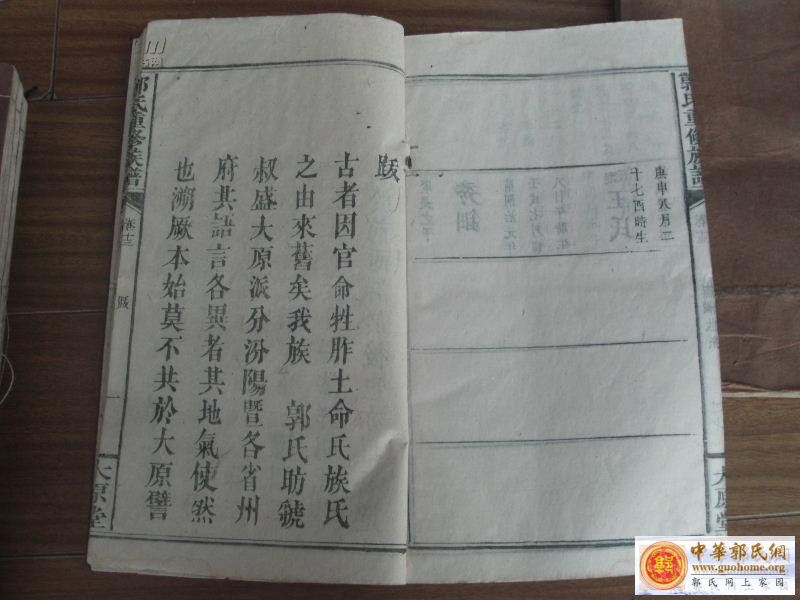 郭氏重修族譜
大原堂
庚申八月二
十七酉時生
王氏
跋
古者因官命牲胙土命氏族氏
之由來舊矣我族 郭氏昉虢
叔盛大原派分汾陽暨各省州
府其語言各異者其地氣使然
也溯厥本始莫不共於大原譬
郭氏重修族譜
卷十三
跋
一
大原堂
中華郭氏網
www.guohome.org
郭氏网上家园